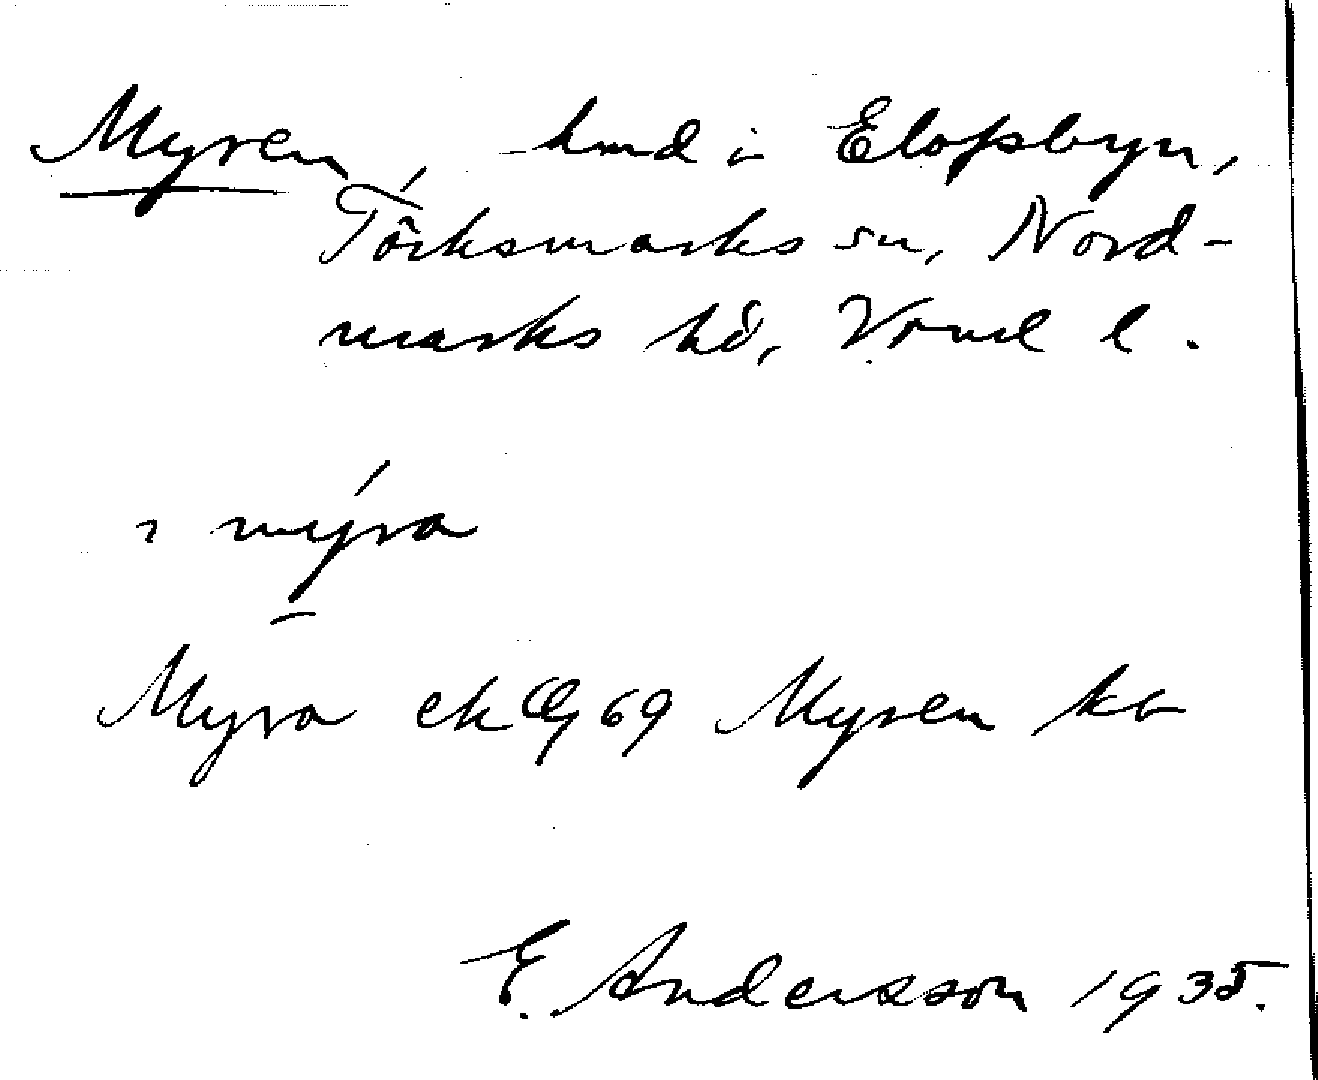 Myren, hmd i Elofsbyn,
Töcksmarks sn, Nord-
marks hd, Vrml l.
ı mýra
Myra ek Œ 69 Myren ka
E. Andersson 1935.